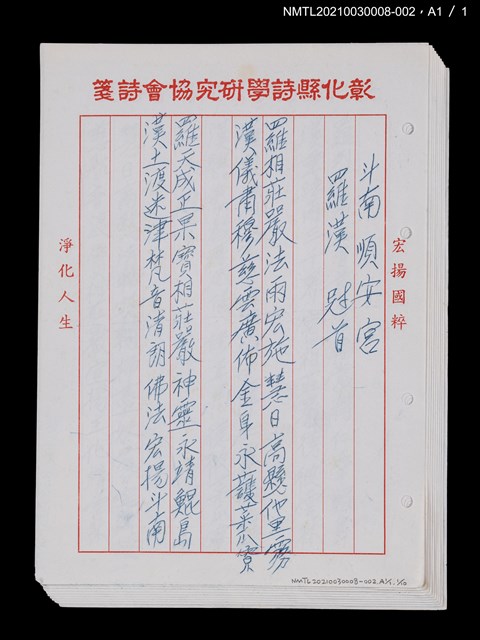 NMTL20210030008-002，A1 / 1
彰化縣詩學研究協會詩箋
宏揚國粹
斗南順安宮
羅漢 冠首
羅相莊嚴法雨宏施慧日高懸他里霧
漢儀肅穆慈雲廣佈金身永護菜公寮
羅天成正果寶相莊嚴神靈永靖鯤島
漢土渡迷津梵音清朗佛法宏揚斗南
淨化人生
NMTL20210030008-002.A1/1.1/10